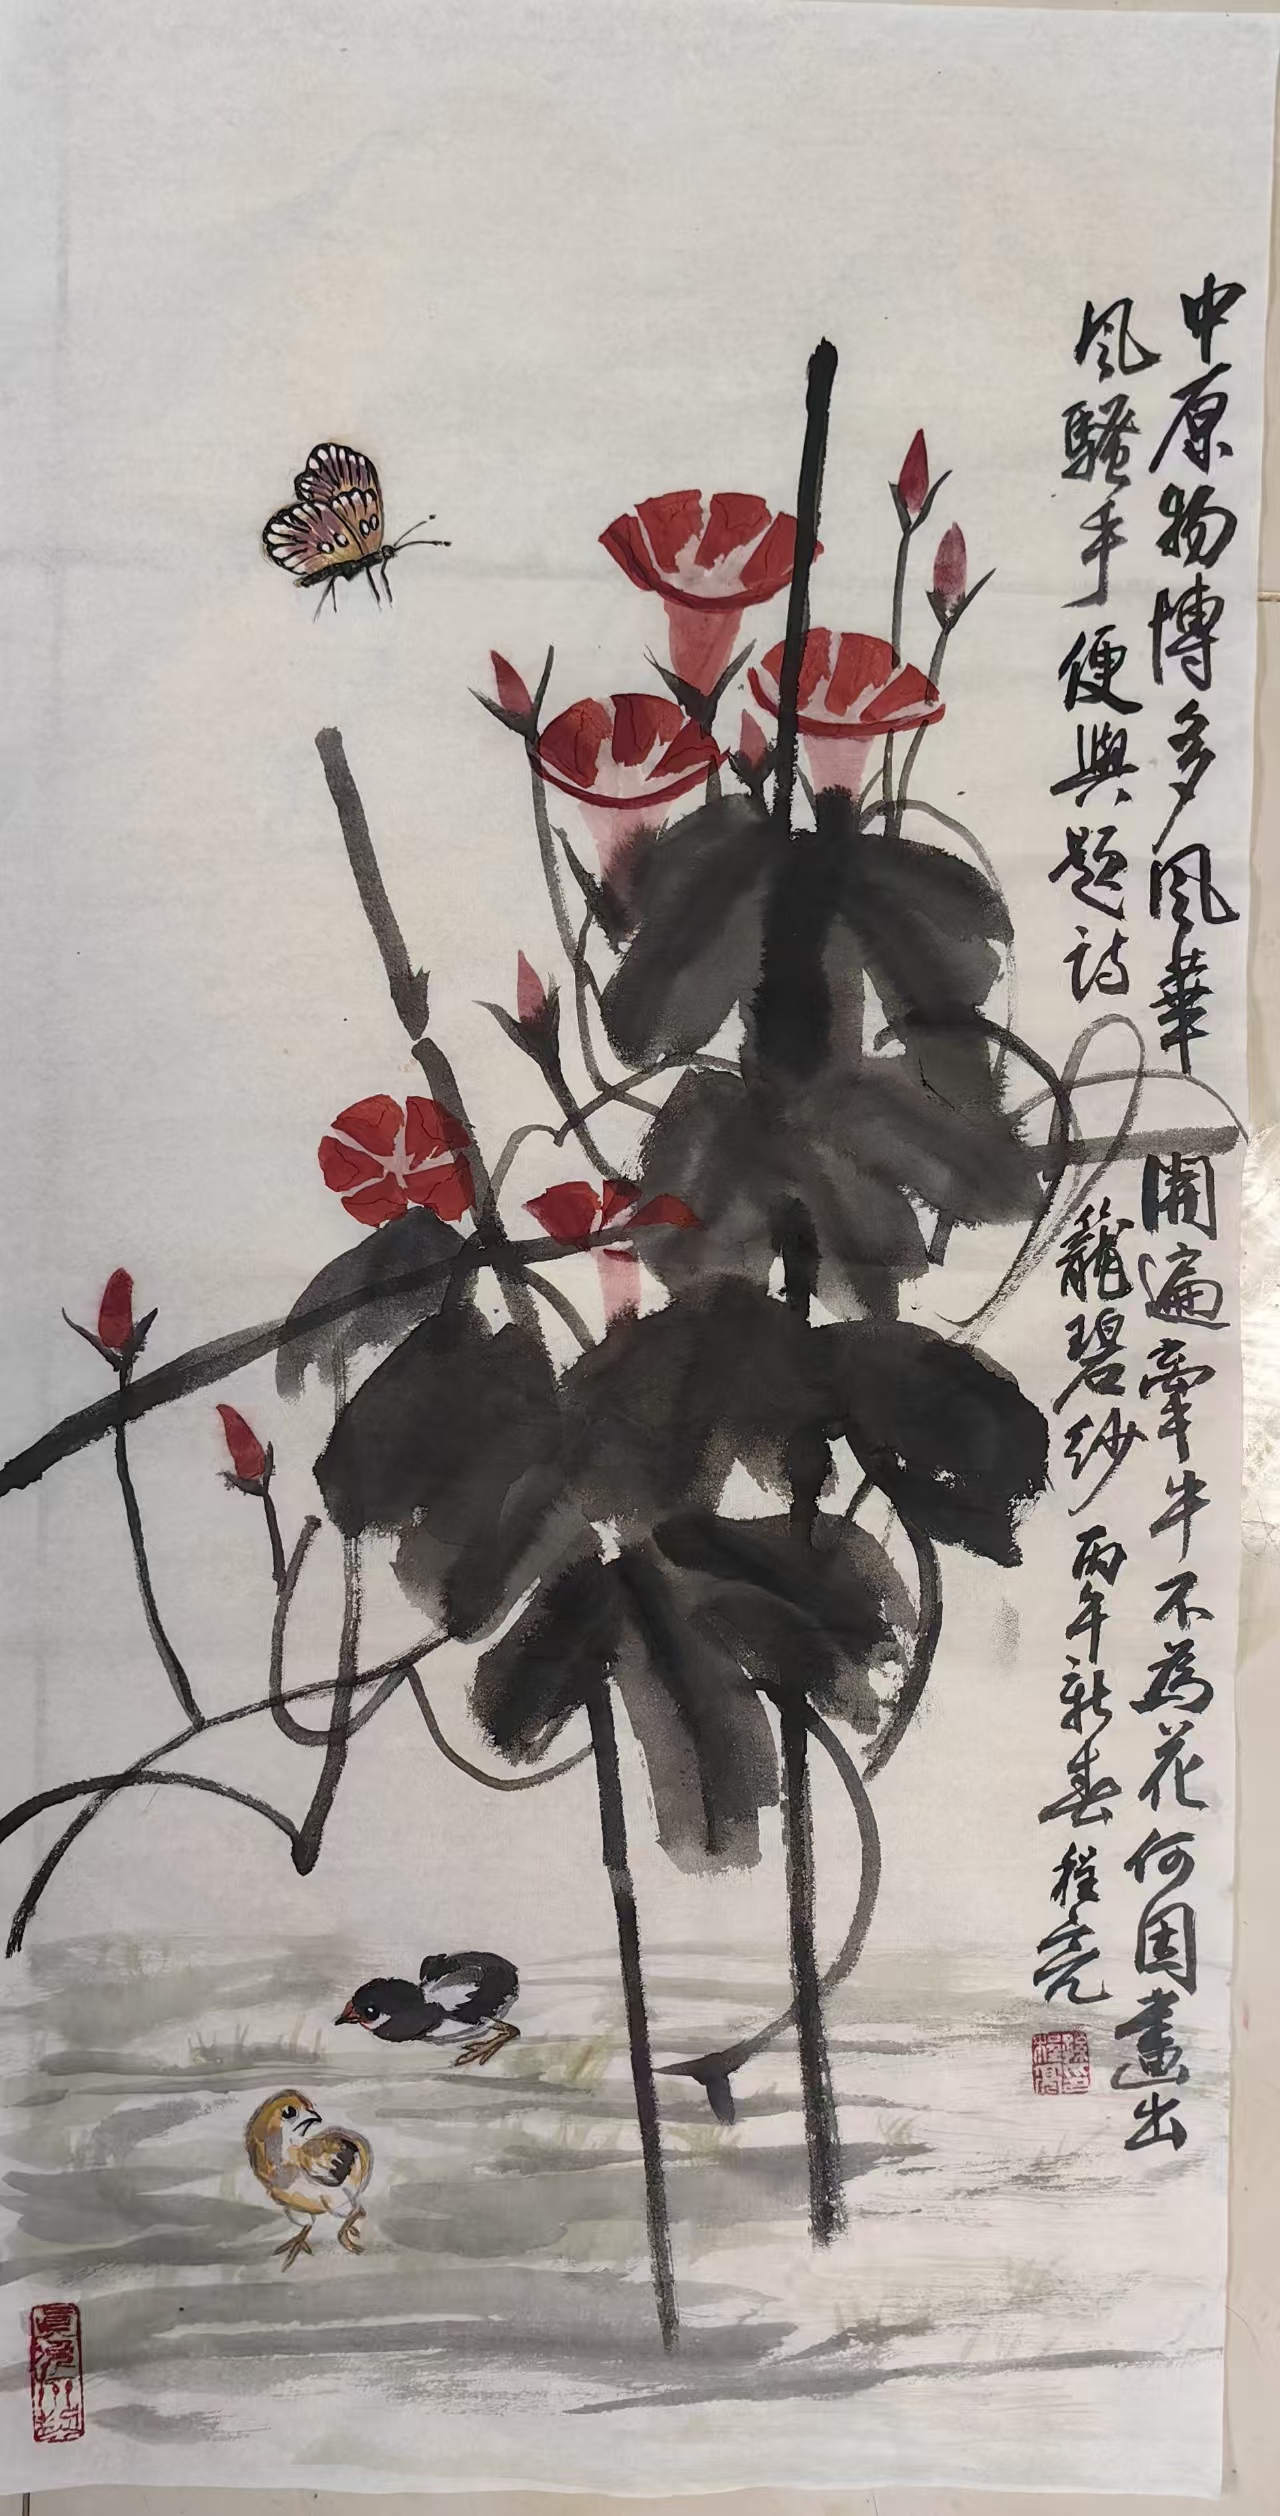 中原物博多風華 開遍牽牛不為花 何因畫出
風騷手 便與題詩 籠碧紗 丙午新春 程亮